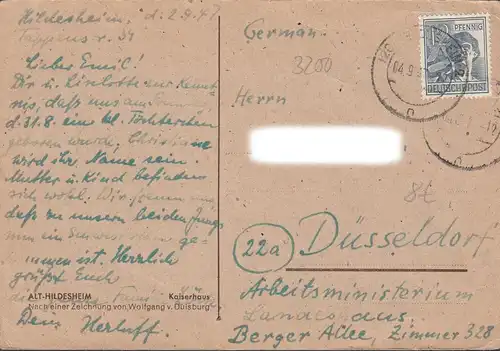 Hildesheim, d. 2.9.47
Tappens r. 34
Lieber Emil!
Dir u. Liselotte zur Kennt-
nis, daß uns am
d. 31.8. ein kl. Töchterchen
geboren wurde. Christiane
wird ihr Name sein.
Mutter u. Kind befinden
sich wohl. Wir freuen uns,
daß zu unsern beiden Jungs
nun ein Schwesterchen ge-
kommen ist. Herzlich
grüßt Euch
die Fam.
Dein
German
3200
Herrn
12 PFENNIG
DEUTSCHE POST
04.9.
84
22a Düsseldorf
Arbeitsministerium
Landeshaus.
Berger Allee, Zimmer 328
ALT-HILDESHEIM Kaiserhaus
Nach einer Zeichnung von Wolfgang v. Duisburg